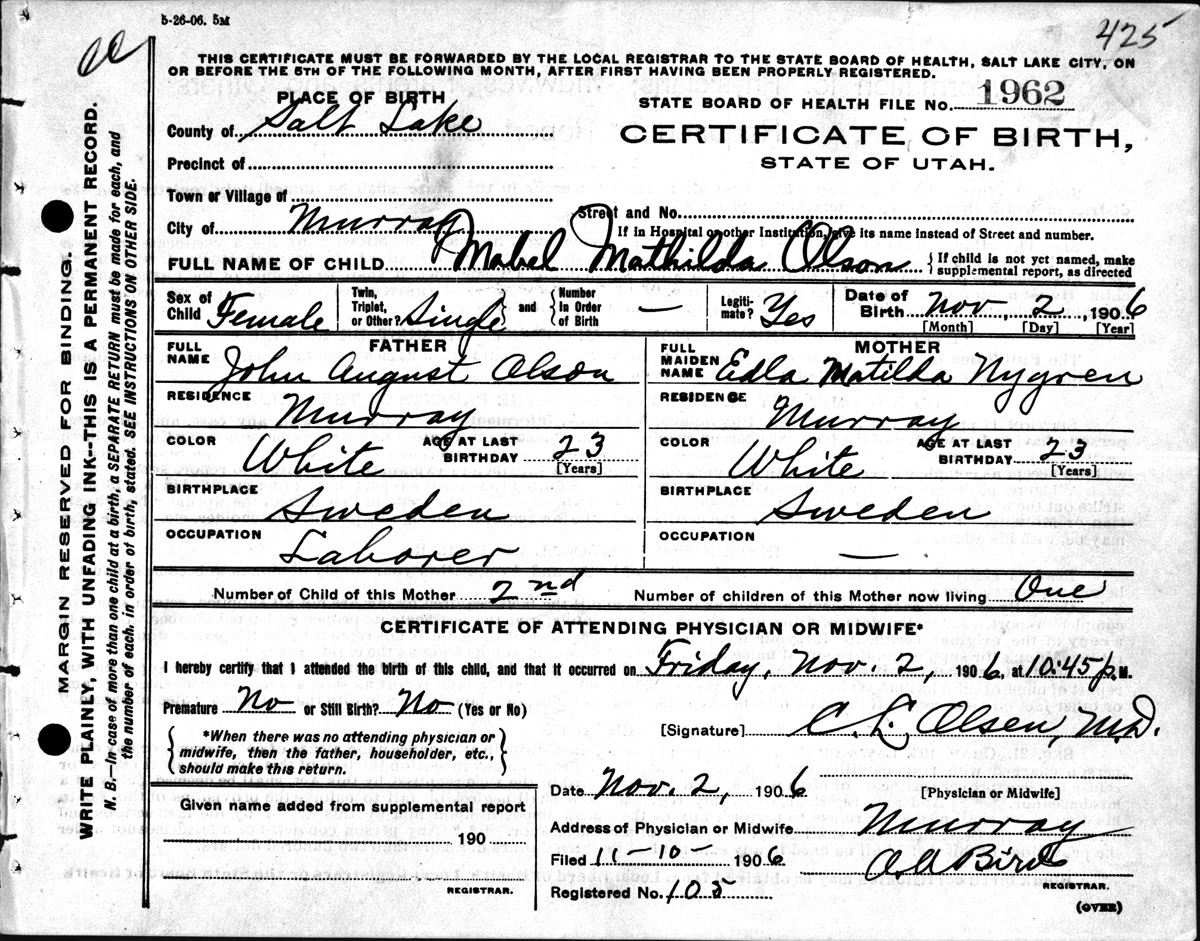 5-26-06. 5M
425
THIS CERTIFICATE MUST BE FORWARDED BY THE LOCAL REGISTRAR TO THE STATE BOARD OF HEALTH, SALT LAKE CITY, ON
OR BEFORE THE 5TH OF THE FOLLOWING MONTH, AFTER FIRST HAVING BEEN PROPERLY REGISTERED.
PLACE OF BIRTH
STATE BOARD OF HEALTH FILE NO. 1962
County of Salt Lake
CERTIFICATE OF BIRTH,
Precinct of
STATE OF UTAH.
Town or Village of
Street and No.
City of Murray
If in Hospital or other Institution, give its name instead of Street and number.
FULL NAME OF CHILD Mabel Mathilda Olson { If child is not yet named, make supplemental report, as directed
Sex of Child Female
Twin, Triplet, or Other? Single and { Number in Order of Birth —
Legitimate? Yes
Date of Birth Nov. 2, 1906
[Month] [Day] [Year]
FATHER
FULL NAME John August Olson
RESIDENCE Murray
COLOR White AGE AT LAST BIRTHDAY 23
[Years]
BIRTHPLACE Sweden
OCCUPATION Laborer
MOTHER
FULL MAIDEN NAME Edla Matilda Nygren
RESIDENCE Murray
COLOR White AGE AT LAST BIRTHDAY 23
[Years]
BIRTHPLACE Sweden
OCCUPATION —
Number of Child of this Mother 2nd Number of children of this Mother now living One
CERTIFICATE OF ATTENDING PHYSICIAN OR MIDWIFE*
I hereby certify that I attended the birth of this child, and that it occurred on Friday, Nov. 2, 1906, at 10:45 p. M.
Premature No or Still Birth? No (Yes or No)
[Signature] C. L. Olsen, M.D.
{ *When there was no attending physician or
midwife, then the father, householder, etc.,
should make this return. }
Date Nov. 2, 1906
[Physician or Midwife]
Given name added from supplemental report
190
REGISTRAR.
Address of Physician or Midwife Murray
Filed 11-10- 1906
A A Bird
REGISTRAR.
Registered No. 105
(OVER)
MARGIN RESERVED FOR BINDING.
WRITE PLAINLY, WITH UNFADING INK--THIS IS A PERMANENT RECORD.
N. B.—In case of more than one child at a birth, a SEPARATE RETURN must be made for each, and
the number of each, in order of birth, stated. SEE INSTRUCTIONS ON OTHER SIDE.